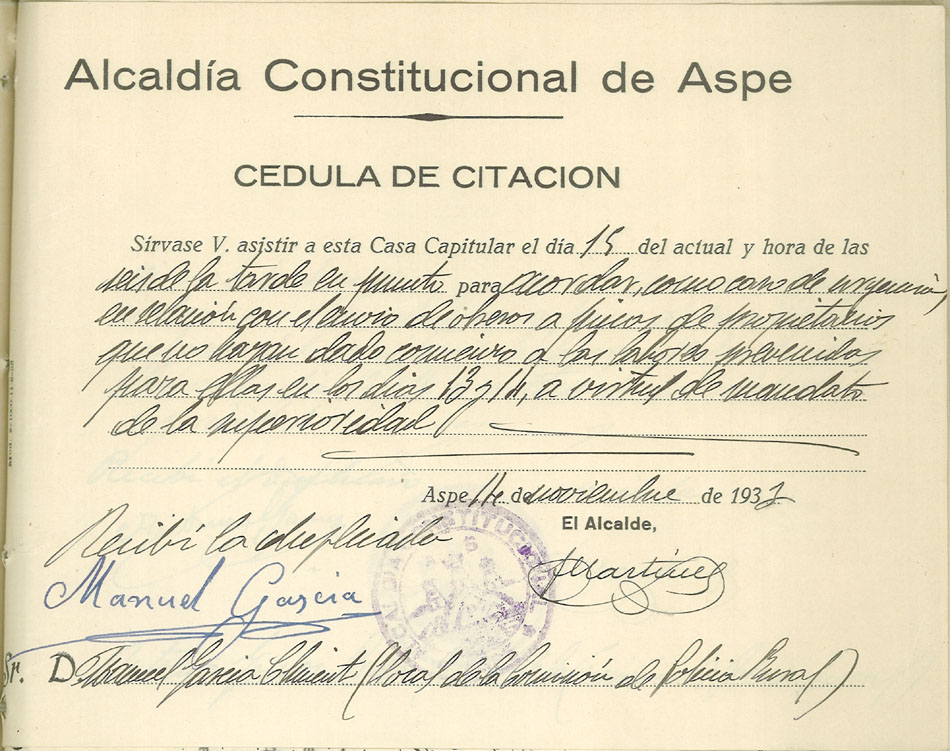 Alcaldía Constitucional de Aspe
CEDULA DE CITACION
Sírvase V. asistir a esta Casa Capitular el día 15 del actual y hora de las
seis de la tarde en punto para acordar, como caso de urgencia,
en relación con el envio de obreros a fincas de propietarios
que no hayan dado comienzo a las labores prevenidas
para ellas en los dias 13 y 14, a virtud de mandato
de la superioridad
Aspe 14 de noviembre de 193
El Alcalde,
Recibí la duplicado
Martínez
Manuel Garcia
CONSTITUCIONAL
Sr. D. Manuel Garcia (Vocal de la Comisión de Policia Rural)